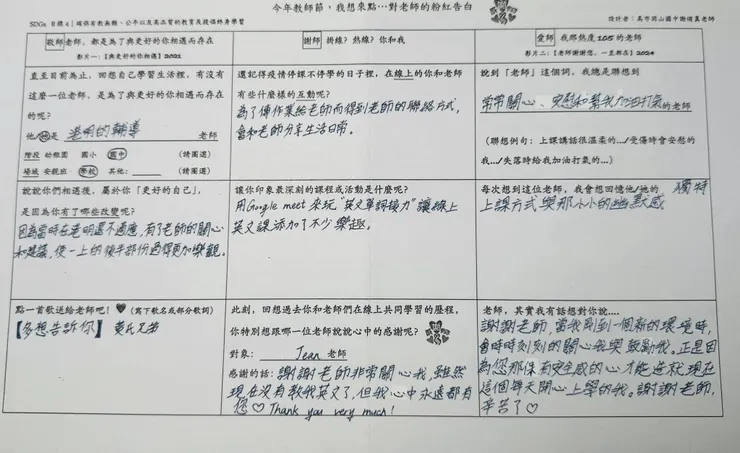 今年教師節，我想來點…對老師的粉紅告白
SDGs 目標4｜確保有教無類、公平以及高品質的教育及提倡終身學習
設計者：高市岡山國中謝侑真老師
敬師 老師，都是為了與更好的你相遇而存在
影片一：【與更好的你相遇】2021
直至目前為止，回想自己學習生活裡，有沒有
這麼一位老師，是為了與更好的你相遇而存在
的呢？
他/她是 老明的輔導 老師
階段 幼稚園 國小 國中 （請圈選）
場域 安親班 學校 其他：＿＿＿ （請圈選）
謝師 掛線？熱線？你和我
還記得疫情停課不停學的日子裡，在線上的你和老師
有些什麼樣的互動呢？
為了傳作業給老師而得到老師的聯絡方式，
會和老師分享生活日常。
愛師 我那熱度105的老師
影片二：【老師謝謝您，一直都在】2024
說到「老師」這個詞，我總是聯想到
常常關心、安慰和幫我加油打氣的老師
（聯想例句：上課講話很溫柔的…/受傷時會安慰的
我…/失落時給我加油打氣的…）
說說你們相遇後，屬於你「更好的自己」，
是因為你有了哪些改變呢？
因為當時在老明還不適應，有了老師的關心
和建議，使一上的後半部份過得更加樂觀。
讓你印象最深刻的課程或活動是什麼呢？
用Google meet來玩"英文單詞接力"讓線上
英文課添加了不少樂趣。
每次想到這位老師，我會想回憶他/她的 獨特
上課方式與那小小的幽默感
點一首歌送給老師吧！（寫下歌名或部分歌詞）
【多想告訴你】 黃氏兄弟
此刻，回想過去你和老師們在線上共同學習的歷程，
你特別想跟哪一位老師說說心中的感謝呢？
對象： Jean 老師
感謝的話：謝謝老師非常關心我，雖然
現在沒有教我英文了，但我心中永遠都有
您♡ Thank you very much!
老師，其實我有話想對你說….
謝謝老師，當我剛到一個新的環境時，
會時時刻刻的關心我與鼓勵我。正是因
為您那保有安全感的心才能造就現在
這個每天開心上學的我。謝謝老師，
辛苦了♡